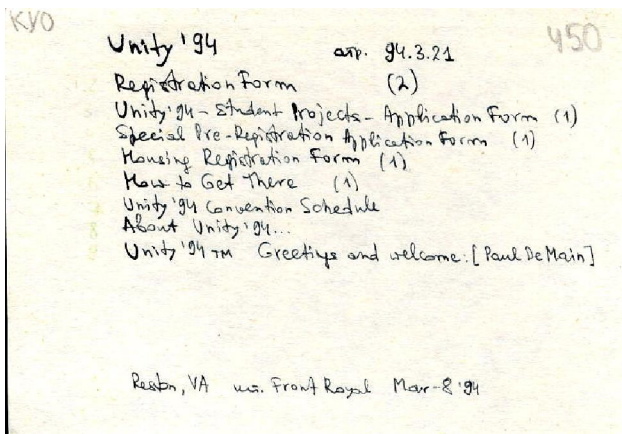 KYO
450
Unity '94 отр. 94.3.21
Registration Form (2)
Unity '94 - Student Projects - Application Form (1)
Special Pre-Registration Application Form (1)
Housing Registration Form (1)
How to Get There (1)
Unity '94 Convention Schedule
About Unity '94...
Unity '94 TM Greetings and welcome: [Paul DeMain]
Reston, VA шт. Front Royal Mar-8 '94